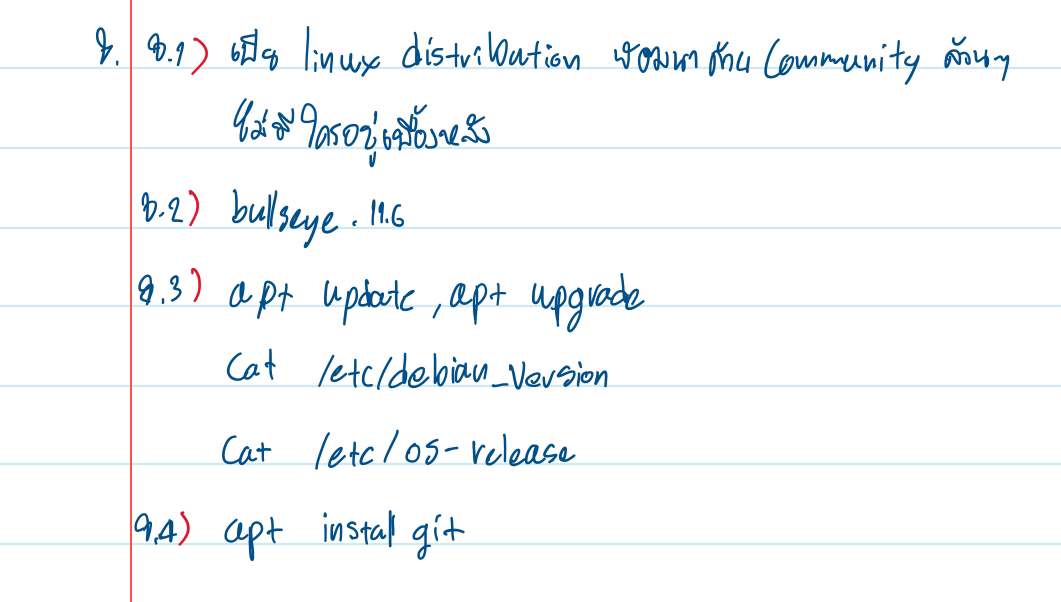 8. 8.1) เป็น linux distribution พัฒนา ด้วย Community ล้วนๆ
ไม่มีใครอยู่เบื้องหลัง
8.2) bullseye . 11.6
8.3) apt update , apt upgrade
Cat /etc/debian_version
Cat /etc/os-release
8.4) apt install git